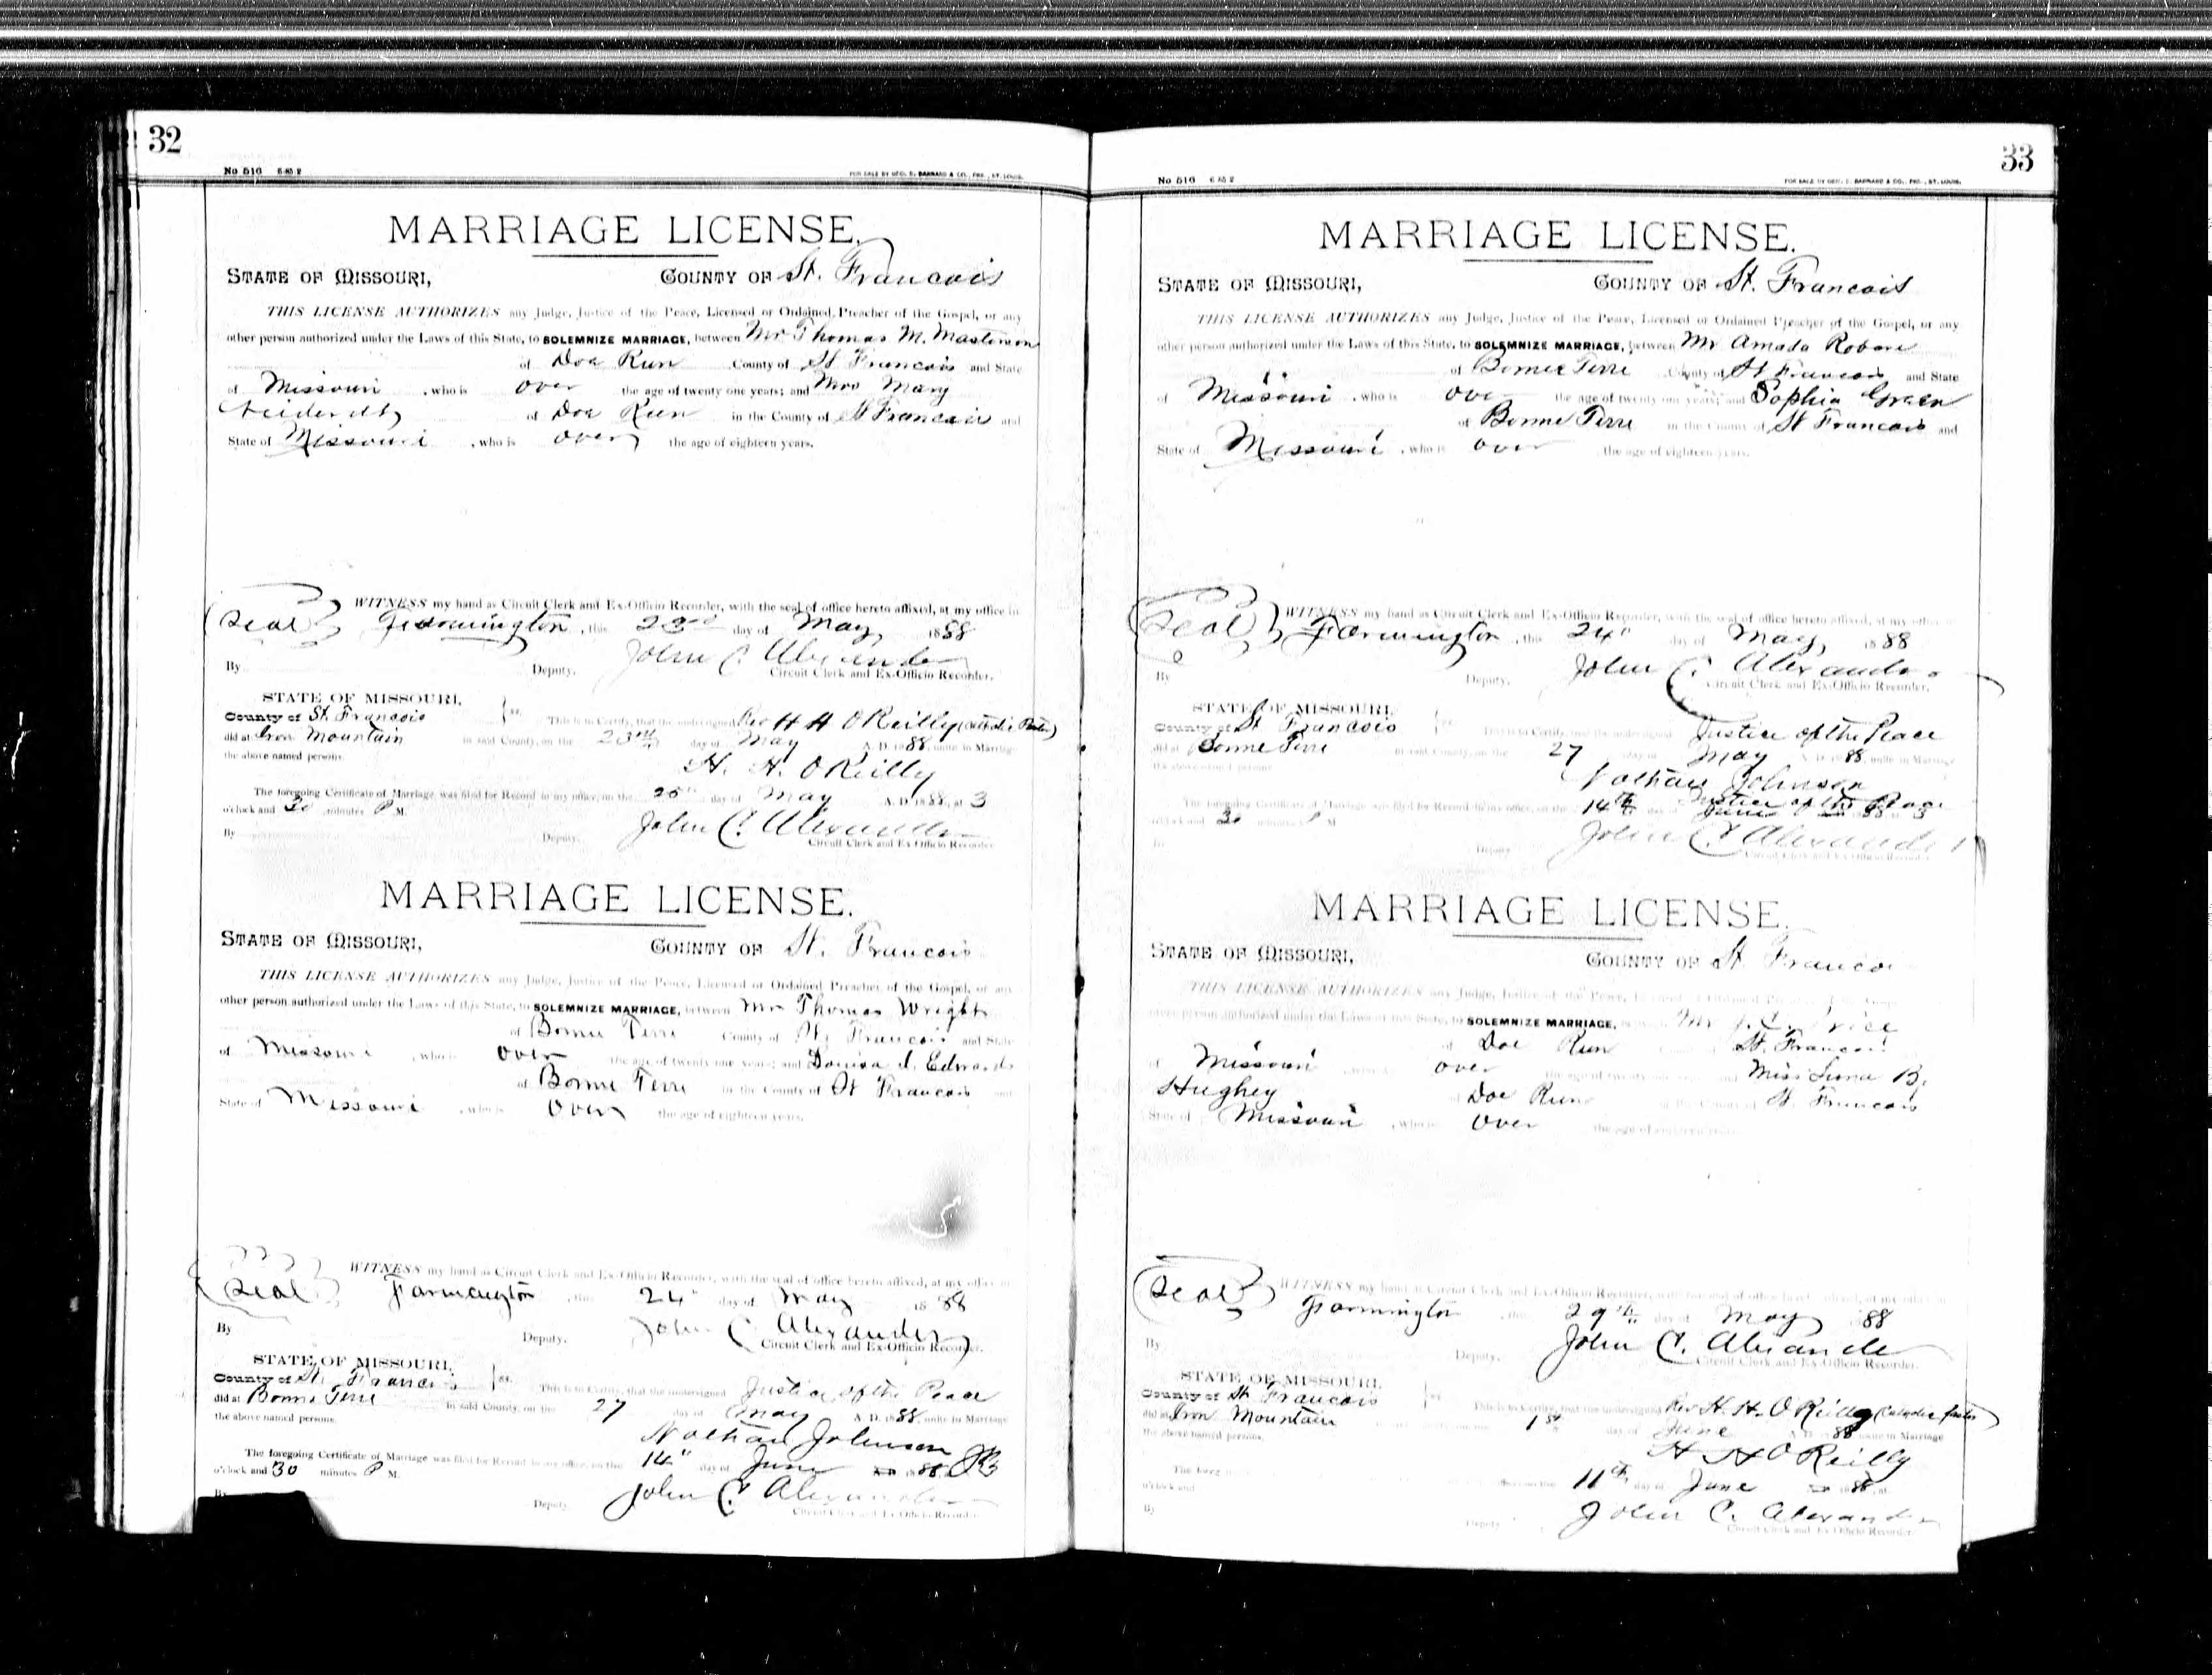 32
No 516 6-85 2
FOR SALE BY GEO. D. BARNARD & CO., PRS., ST. LOUIS.
MARRIAGE LICENSE.
STATE OF MISSOURI, COUNTY OF St. Francois
THIS LICENSE AUTHORIZES any Judge, Justice of the Peace, Licensed or Ordained Preacher of the Gospel, or any
other person authorized under the Laws of this State, to SOLEMNIZE MARRIAGE, between Mr Thomas M. Masterson
of Doe Run County of St Francois and State
of Missouri, who is over the age of twenty one years; and Mrs Mary
of Doe Run in the County of St Francois and
State of Missouri, who is over the age of eighteen years.
WITNESS my hand as Circuit Clerk and Ex-Officio Recorder, with the seal of office hereto affixed, at my office in
Seal Farmington, this 23rd day of May 1888
John C. Alexander
By Deputy. Circuit Clerk and Ex-Officio Recorder.
STATE OF MISSOURI,
County of St. Francois ss. This is to Certify, that the undersigned Rev H H O Reilly (Catholic Pastor)
did at Iron Mountain in said County, on the 23rd day of May A. D. 1888, unite in Marriage
the above named persons.
H. H. O Reilly
The foregoing Certificate of Marriage was filed for Record in my office, on the day of May A. D. 1888, at 3
o'clock and 30 minutes P M.
John C. Alexander
By Deputy. Circuit Clerk and Ex-Officio Recorder
MARRIAGE LICENSE.
STATE OF MISSOURI, COUNTY OF St. Francois
THIS LICENSE AUTHORIZES any Judge, Justice of the Peace, Licensed or Ordained Preacher of the Gospel, or any
other person authorized under the Laws of this State, to SOLEMNIZE MARRIAGE, between Mr Thomas Wright
of Bonne Terre County of St. Francois and State
of Missouri, who is over the age of twenty one years; and Louisa J. Edwards
of Bonne Terre in the County of St Francois and
State of Missouri, who is over the age of eighteen years.
WITNESS my hand as Circuit Clerk and Ex-Officio Recorder, with the seal of office hereto affixed, at my office in
Seal Farmington, this 24" day of May 1888
John C. Alexander
By Deputy. Circuit Clerk and Ex-Officio Recorder.
STATE OF MISSOURI,
County of St. Francois ss. This is to Certify, that the undersigned Justice of the Peace
did at Bonne Terre in said County, on the 27 day of May A. D. 1888, unite in Marriage
the above named persons.
Nathan Johnson
The foregoing Certificate of Marriage was filed for Record in my office, on the 14" day of June 1888
o'clock and 30 minutes P M.
John C. Alexander
By Deputy. Circuit Clerk and Ex-Officio Recorder
33
No 516 6-85 2
FOR SALE BY GEO. D. BARNARD & CO., PRS., ST. LOUIS.
MARRIAGE LICENSE.
STATE OF MISSOURI, COUNTY OF St. Francois
THIS LICENSE AUTHORIZES any Judge, Justice of the Peace, Licensed or Ordained Preacher of the Gospel, or any
other person authorized under the Laws of this State, to SOLEMNIZE MARRIAGE, between Mr Amada Robare
of Bonne Terre County of St Francois and State
of Missouri, who is over the age of twenty one years; and Sophia Green
of Bonne Terre in the County of St Francois and
State of Missouri, who is over the age of eighteen years.
WITNESS my hand as Circuit Clerk and Ex-Officio Recorder, with the seal of office hereto affixed, at my office in
Seal Farmington, this 24" day of May, 1888
John C. Alexander
By Deputy. Circuit Clerk and Ex-Officio Recorder.
STATE OF MISSOURI,
County of St Francois This is to Certify, that the undersigned Justice of the Peace
did at Bonne Terre in said County, on the 27 day of May A. D. 1888, unite in Marriage
the above named persons.
Nathan Johnson
Justice of the Peace
The foregoing Certificate of Marriage was filed for Record in my office, on the 14th day of June 88 3
o'clock and 30 minutes P M
John C. Alexander
By Deputy Circuit Clerk and Ex-Officio Recorder
MARRIAGE LICENSE.
STATE OF MISSOURI, COUNTY OF St Francoi
THIS LICENSE AUTHORIZES any Judge, Justice of the Peace, Licensed or Ordained Preacher of the Gospel
other person authorized under the Laws of this State, to SOLEMNIZE MARRIAGE, between Mr J. C. Price
of Doe Run St. Francois
of Missouri over the age of twenty Miss Luna B.
Hughey of Doe Run in the County of St. Francois
State of Missouri, who is over the age of eighteen years
WITNESS my hand as Circuit Clerk and Ex-Officio Recorder, with the seal of office hereto affixed, at my office in
Seal Farmington, this 29th day of May 88
John C. Alexander
By Deputy. Circuit Clerk and Ex-Officio Recorder.
STATE OF MISSOURI,
County of St Francois This is to Certify, that the undersigned Rev H. H. O Reilly (Catholic Pastor)
did at Iron Mountain 1st day of June A. D. 1888 unite in Marriage
the above named persons.
H H O Reilly
The foreg 11th day of June 1888, at
o'clock and
John C. Alexander
By Deputy Circuit Clerk and Ex-Officio Recorder.